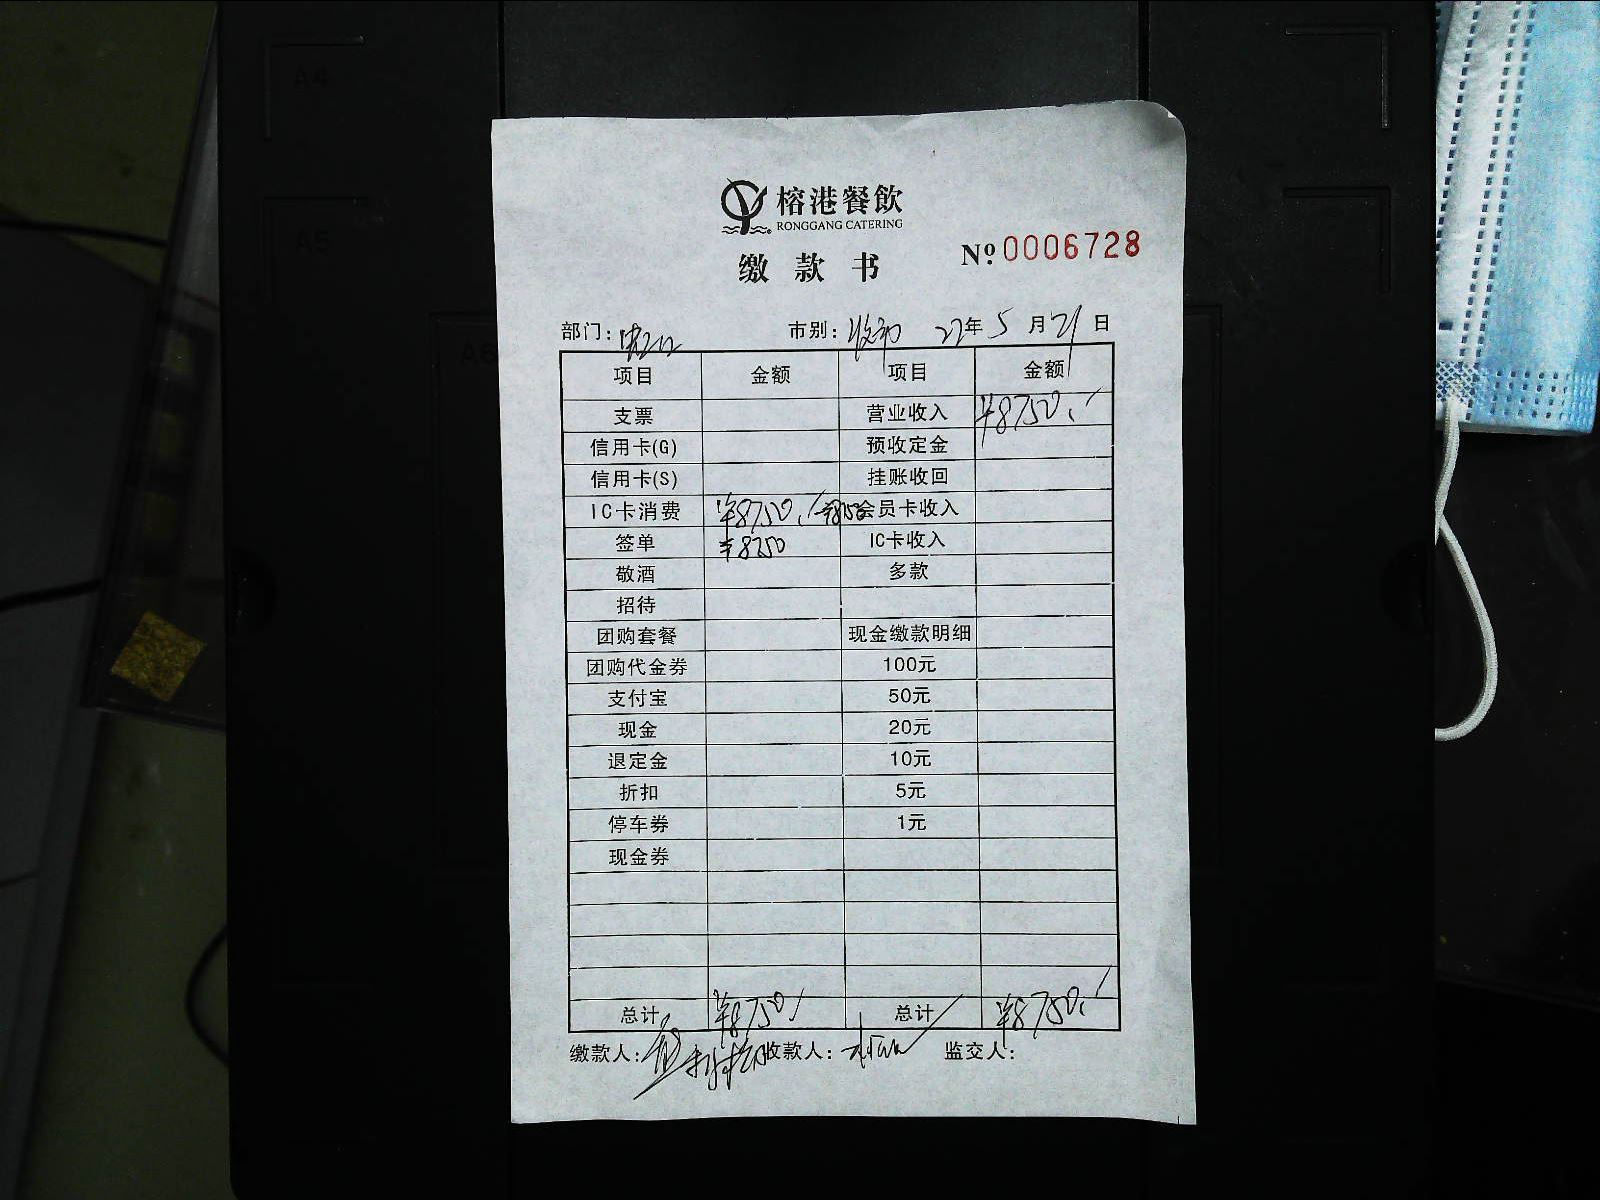 A4
A5
A6
榕港餐飲
RONGGANG CATERING
缴款书
№ 0006728
部门： 市别： 22年5月21日
项目 金额 项目 金额
支票 营业收入 ¥8750.
信用卡(G) 预收定金
信用卡(S) 挂账收回
IC卡消费 ¥8750. 会员卡收入
签单 ¥8750 IC卡收入
敬酒 多款
招待
团购套餐 现金缴款明细
团购代金券 100元
支付宝 50元
现金 20元
退定金 10元
折扣 5元
停车券 1元
现金券
总计 ¥8750 总计 ¥8750.
缴款人： 收款人： 监交人：